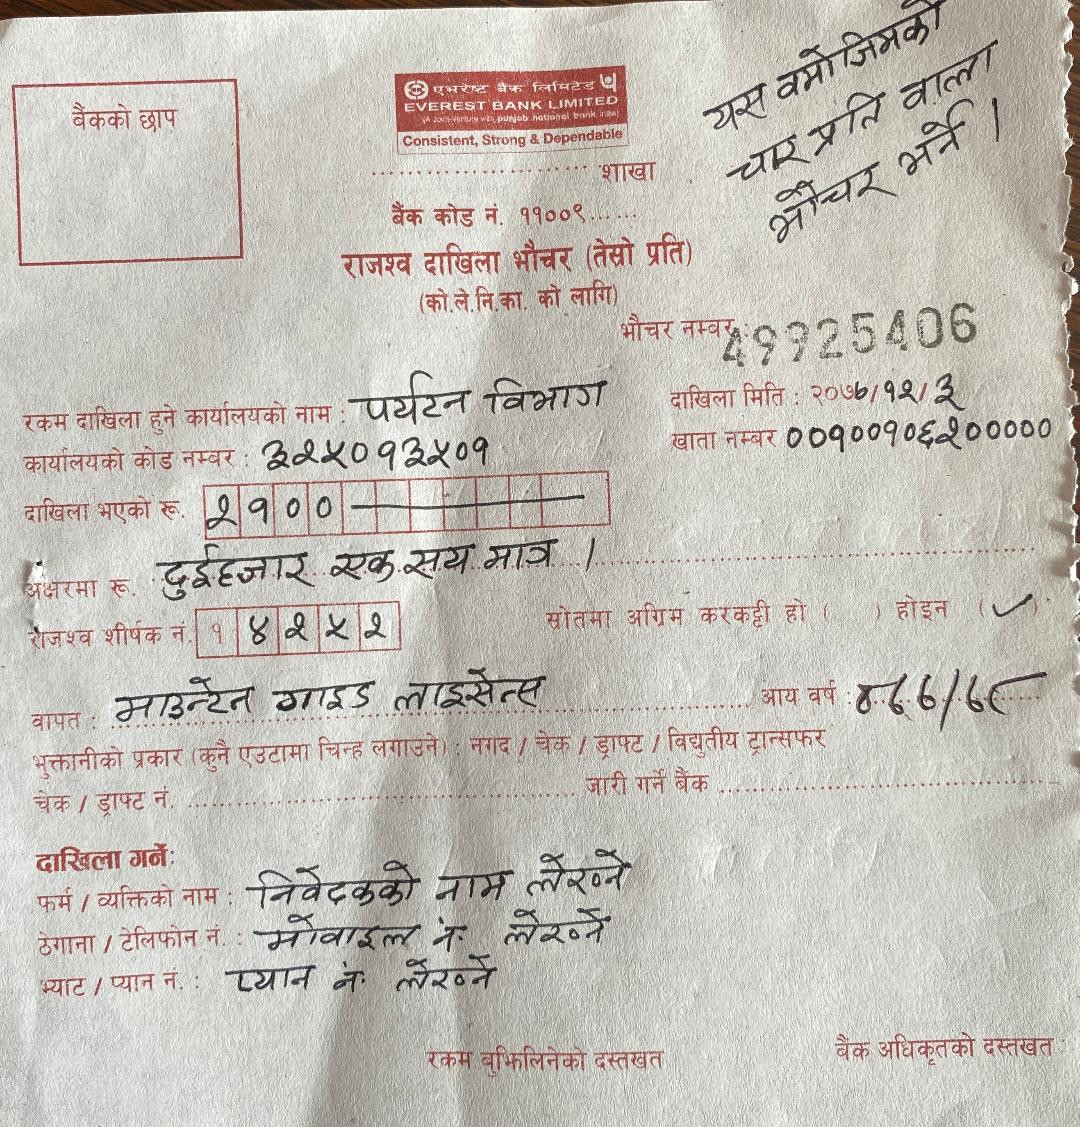 यस वमोजिमको
चार प्रति वाला
भौचर भर्ने ।
बैंकको छाप
एभरेष्ट बैंक लिमिटेड
EVEREST BANK LIMITED
(A Joint-Venture with punjab national bank, India)
Consistent, Strong & Dependable
........................ शाखा
बैंक कोड नं. ११००९......
राजश्व दाखिला भौचर (तेस्रो प्रति)
(को.ले.नि.का. को लागि)
भौचर नम्बर: 49925406
रकम दाखिला हुने कार्यालयको नाम : पर्यटन विभाग
दाखिला मिति : २०७७/१२/३
कार्यालयको कोड नम्बर : ३२५०१३५०१
खाता नम्बर ००१००१०६२०००००
दाखिला भएको रू. २१००
अक्षरमा रू. दुईहजार एक सय मात्र ।
राजश्व शीर्षक नं. १४२५२
स्रोतमा अग्रिम करकट्टी हो ( ) होइन (✓)
वापत : माउन्टेन गाइड लाइसेन्स
आय वर्ष :
भुक्तानीको प्रकार (कुनै एउटामा चिन्ह लगाउने) : नगद / चेक / ड्राफ्ट / विद्युतीय ट्रान्सफर
चेक / ड्राफ्ट नं. ........................ जारी गर्ने बैंक ........................
दाखिला गर्ने:
फर्म / व्यक्तिको नाम : निवेदकको नाम लेख्ने
ठेगाना / टेलिफोन नं. : मोवाइल नं. लेख्ने
भ्याट / प्यान नं. : प्यान नं. लेख्ने
रकम बुझिलिनेको दस्तखत
बैंक अधिकृतको दस्तखत